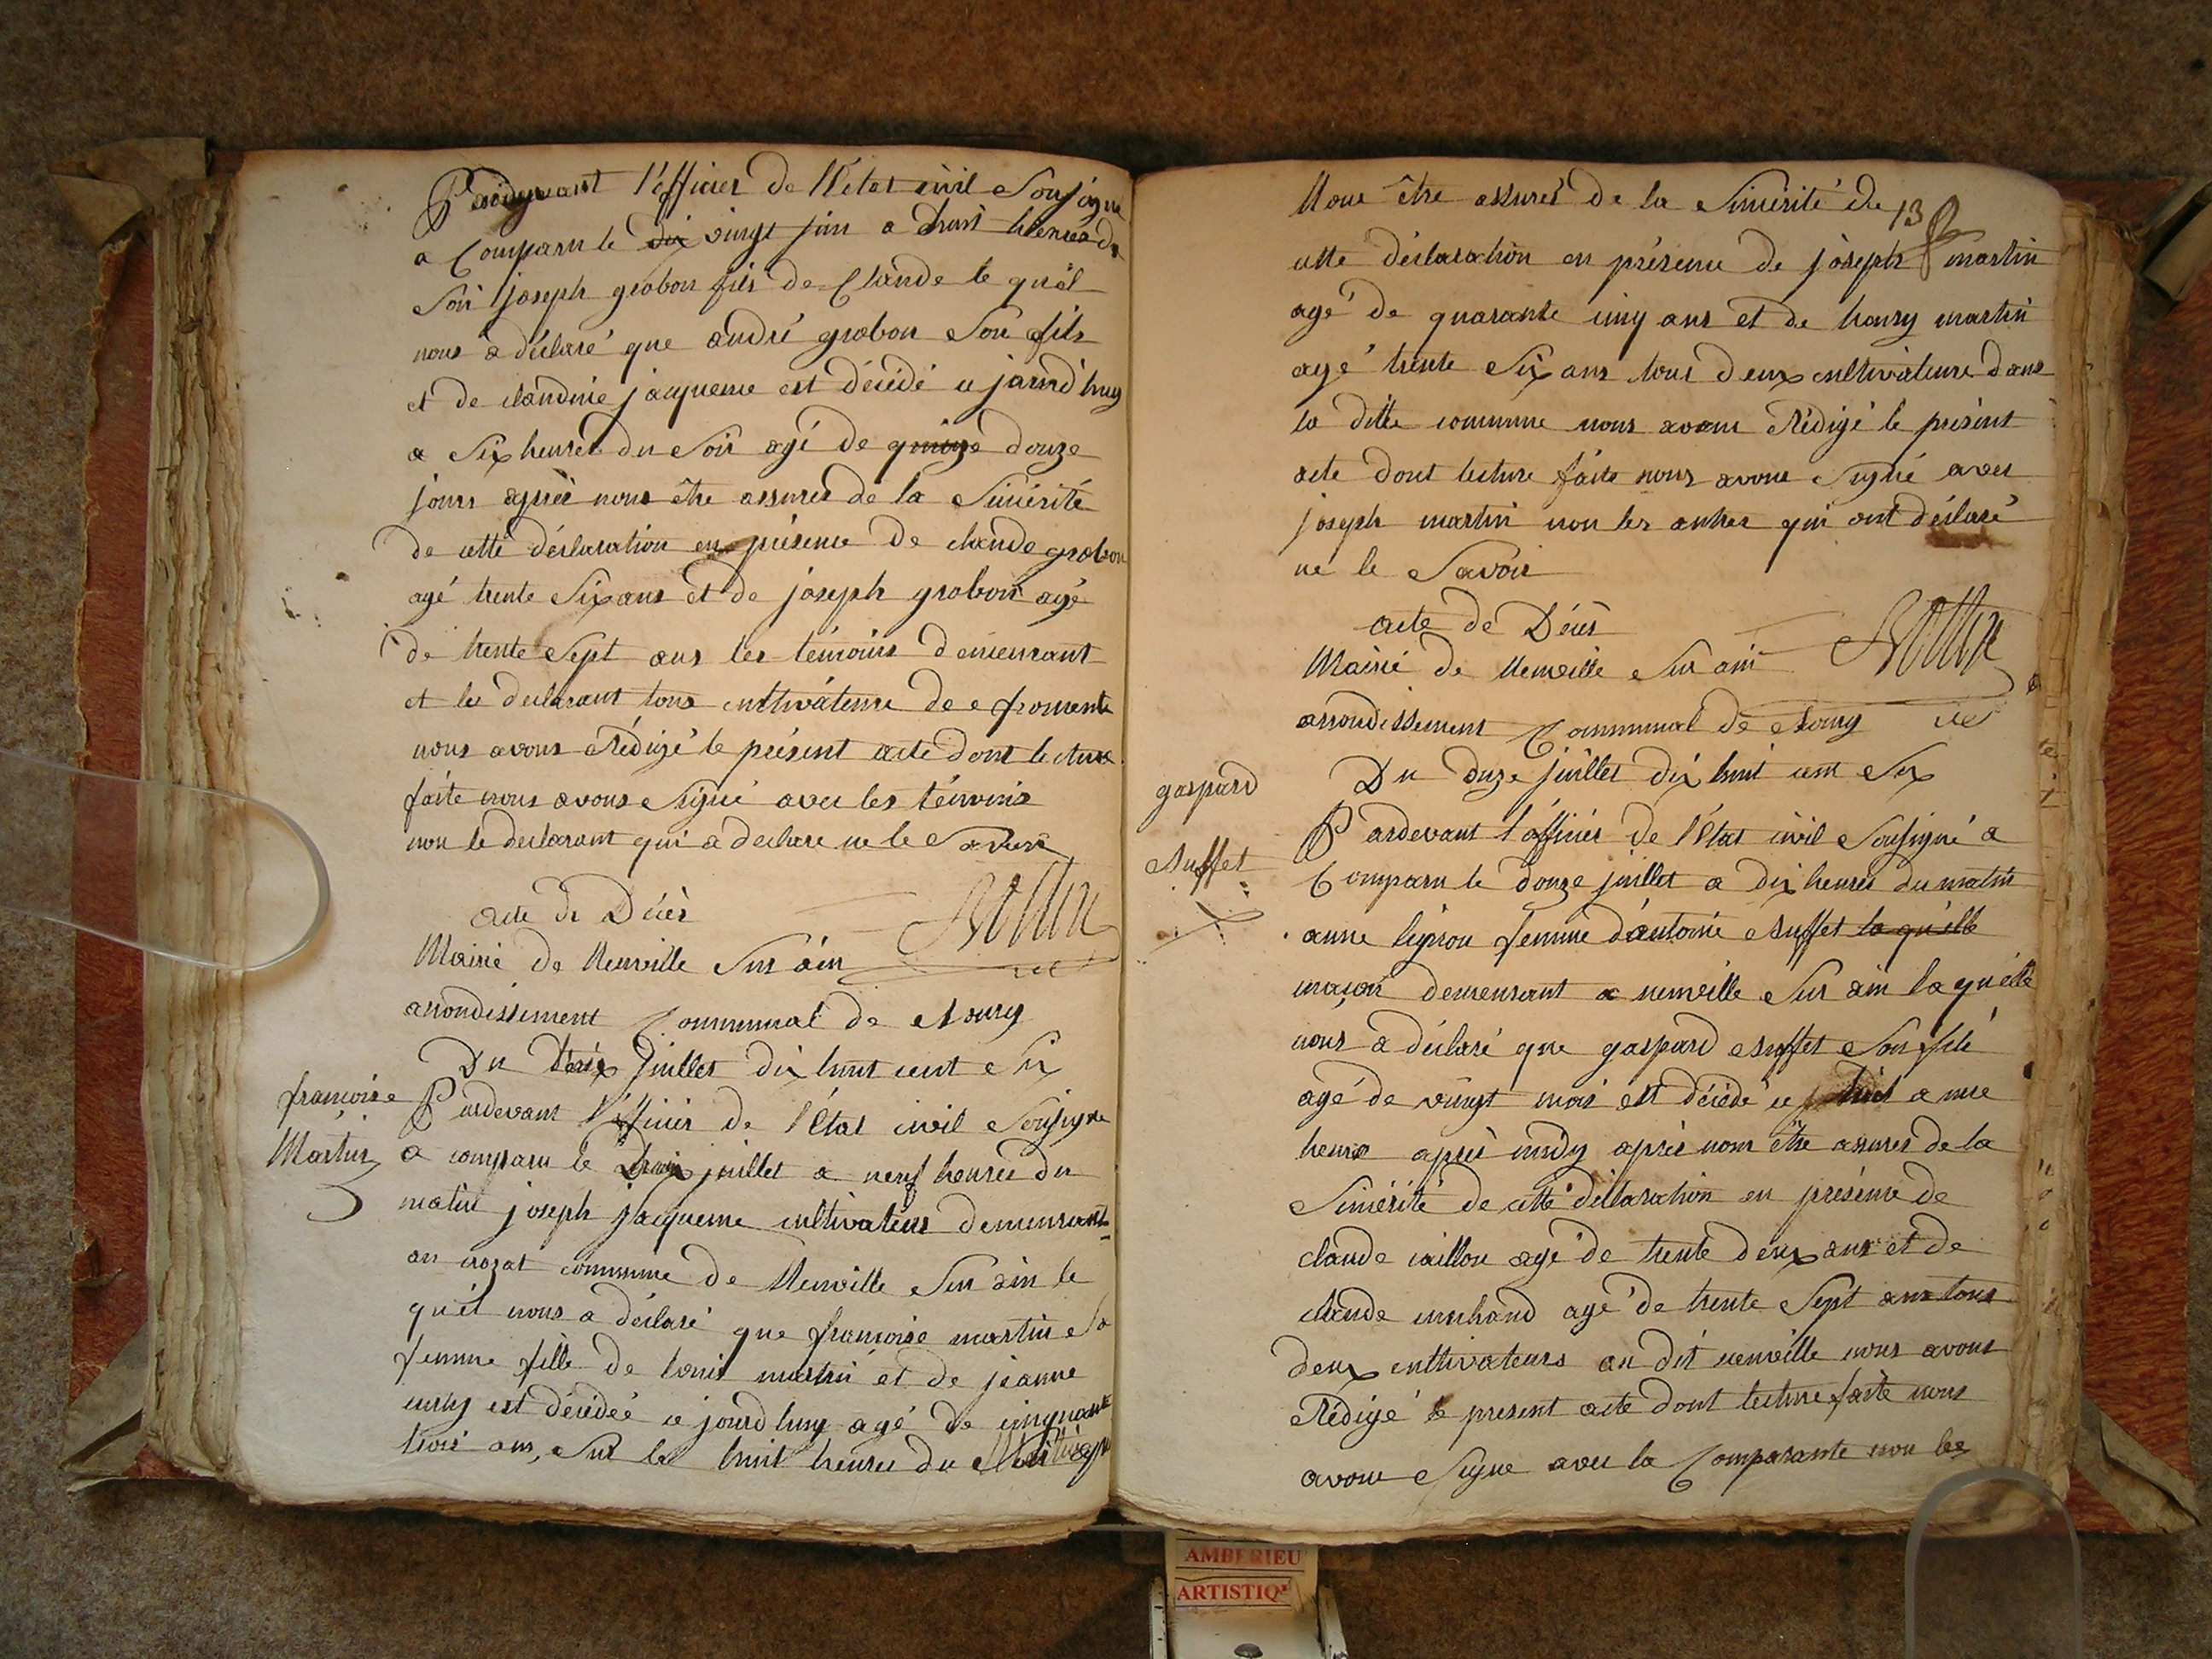 Pardevant l'officier de l'état civil Sousigné
a Comparu le dix vingt juin a huit heures du
Soir joseph grobon fils de Claude le quel
nous a déclaré que andré grobon Son fils
et de claudine jacqueme est décédé ce jourd'huy
a Six heures du Soir agé de quinze douze
jours après nous être assures de la Sincérité
de cette déclaration en présence de claude grobon
agé trente Six ans et de joseph grobon agé
de trente Sept ans les témoins demeurant
et les declarant tous cultivateurs de fromente
nous avons Rédigé le présent acte dont lecture
faite nous avons Signé avec les témoins
non le declarant qui a declare ne le Savoir
acte de Décès
Mairie de Neuville Sur ain
arrondissement Communal de Bourg
Du trois juillet dix huit cent Six
françoise
Martin
Pardevant l'officier de l'état civil Sousigne
a comparu le trois juillet a neuf heures du
matin joseph jacqueme cultivateur demeurant
au crozat commune de Neuville Sur ain le
quel nous a déclaré que françoise martin Sa
femme fille de louis martin et de jeanne
est décédée ce jourd huy agé de cinquante
trois ans, Sur les huit heures du
13
Nous être assurés de la Sincérité de
cette déclaration en présence de joseph martin
agé de quarante cinq ans et de henry martin
agé trente Six ans tous deux cultivateurs dans
la ditte commune nous avons Rédigé le présent
acte dont lecture faite nous avons Signé avec
joseph martin non les autres qui ont déclaré
ne le Savoir
acte de Décès
Mairie de Neuville Sur ain
arrondissement Communal de Bourg
Du onze juillet dix huit cent Six
gaspard
Buffet
Pardevant l'officier de l'état civil Sousigné a
Comparu le douze juillet a dix heures du matin
anne femme d'antoine Buffet la quelle
maçon demeurant a neuville Sur ain la quelle
nous a déclaré que gaspard Buffet Son fils
agé de vingt mois est décédé a une
heure après midy après nous être assures de la
Sincérité de cette déclaration en présence de
claude caillou agé de trente deux ans et de
claude agé de trente Sept ans tous
deux cultivateurs au dit neuville nous avons
Rédigé le present acte dont lecture faite nous
avons Signe avec la Comparante non les
AMBERIEU
ARTISTIQ